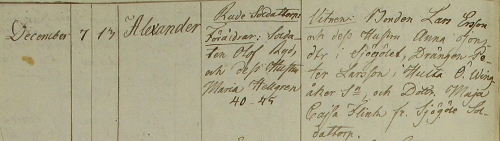 December 7 13 Alexander
Rude Soldattorp
Föräldrar: Solda-
ten Olof Rud,
och dess Hustru
Maria Hellgren
40-45
Vitnen: Bonden Lars Ersson
och dess Hustru Anna Jons
dtr i Sjögölet, Drängen Pe-
ter Larsson i Hulta Ö. Wing-
åker Sn, och Dottr. Maja
Cajsa Flink fr. Sjögöle Sol-
dattorp.